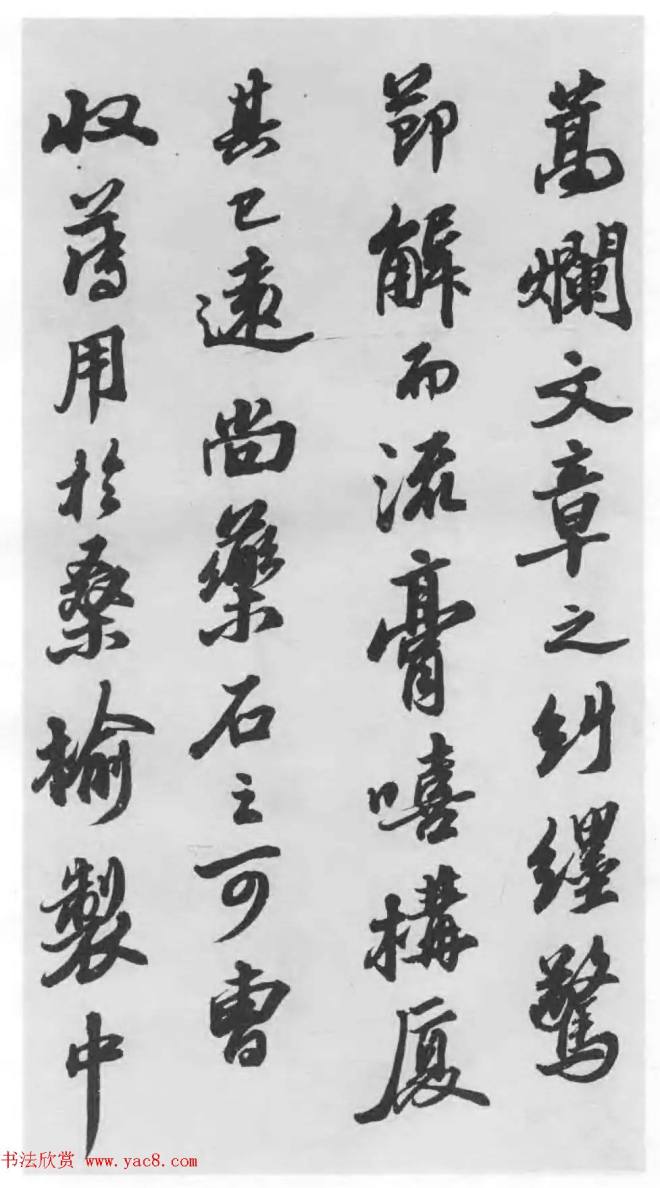 蒿爛文章之糾纆驚
節解而流膏嘻構厦
其已遠尚藥石之可曹
收薄用於桑榆製中
书法欣赏 www.yac8.com